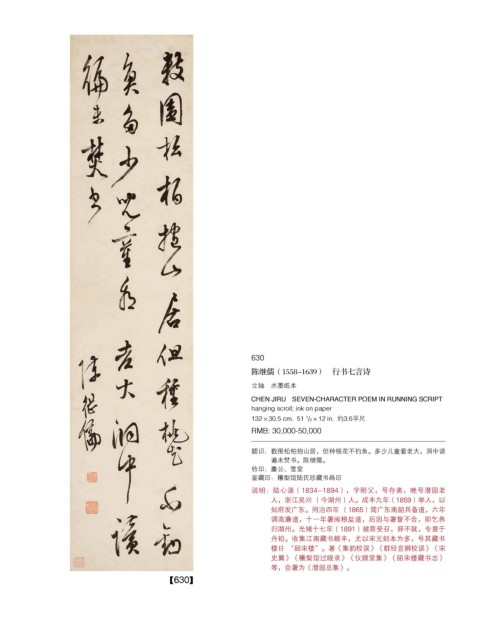 數圍松柏抱山居但種桃花不釣
魚多少兒童看老大洞中讀
徧未焚書
陳繼儒
【630】
630
陈继儒（1558–1639） 行书七言诗
立轴 水墨纸本
CHEN JIRU SEVEN-CHARACTER POEM IN RUNNING SCRIPT
hanging scroll; ink on paper
132×30.5 cm. 51 7/8×12 in. 约3.6平尺
RMB: 30,000-50,000
题识：数围松柏抱山居，但种植花不钓鱼。多少儿童看老大，洞中读
遍未焚书。陈继儒。
钤印：麋公、雪堂
鉴藏印：穰梨馆陆氏珍藏书画印
说明：陆心源（1834–1894），字刚父，号存斋，晚号潜园老
人，浙江吴兴（今湖州）人。咸丰九年（1859）举人，以
知府发广东。同治四年（1865）简广东南韶兵备道，六年
调高廉道，十一年署闽粮盐道，后因与署督不合，即乞养
归湖州。光绪十七年（1891）被荐受召，辞不就，专意于
丹铅。收集江南藏书颇丰，尤以宋元刻本为多，号其藏书
楼曰“皕宋楼”。著《集韵校误》《群经音辨校误》《宋
史翼》《穰梨馆过眼录》《仪顾堂集》《皕宋楼藏书志》
等，合署为《潜园总集》。